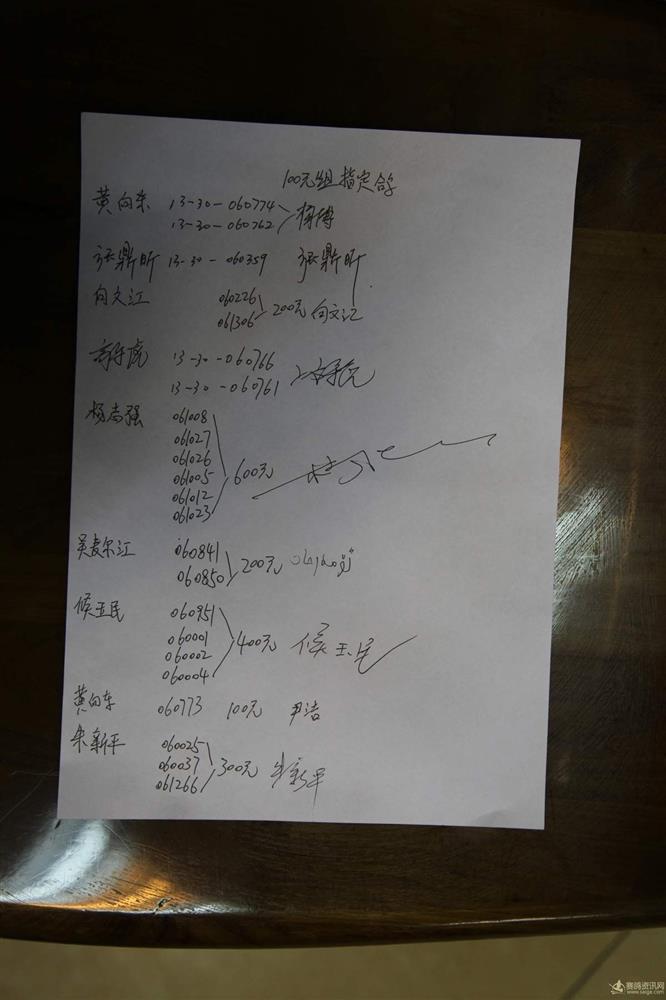 100元组指定鸽
黄向东 13-30-060774
13-30-060762 杨博
张鼎昕 13-30-060359 张鼎昕
向文江 060226
061306 200元 向文江
13-30-060766
13-30-060761
杨尚强 061008
061027
061026
061005 600元
061012
061023
吴麦尔江 060841
060850 200元
候玉民 060951
060001
060002 400元 候玉民
060004
黄向东 060773 100元 尹洁
朱新平 060025
060037 300元 朱新平
061266
赛鸽资讯网
www.saige.com